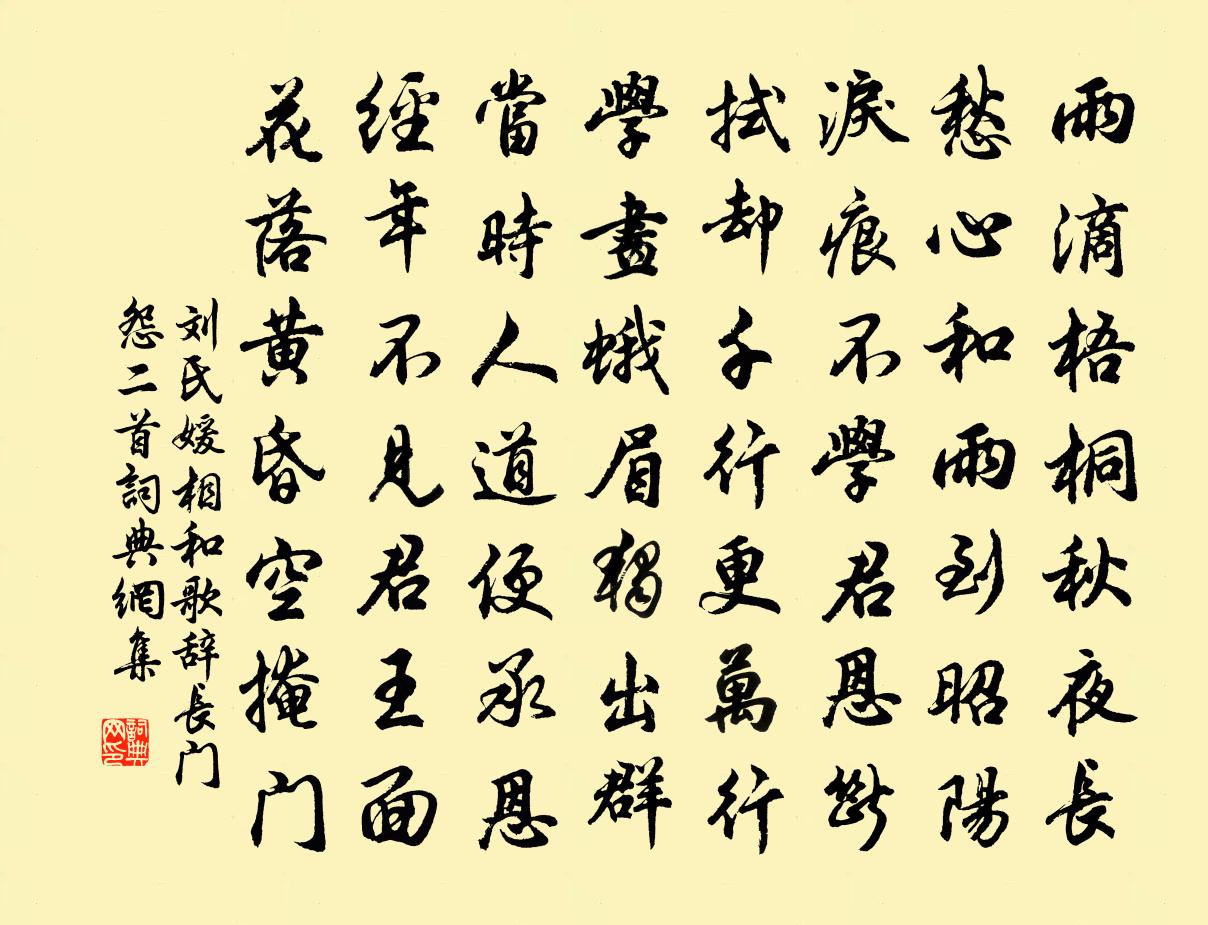 雨滴梧桐秋夜長
愁心和雨到昭陽
淚痕不學君恩斷
拭却千行更萬行
學畫蛾眉獨出群
當時人道便承恩
經年不見君王面
花落黃昏空掩門
刘氏媛相和歌辞長门
怨二首詞典網集
詞典网印